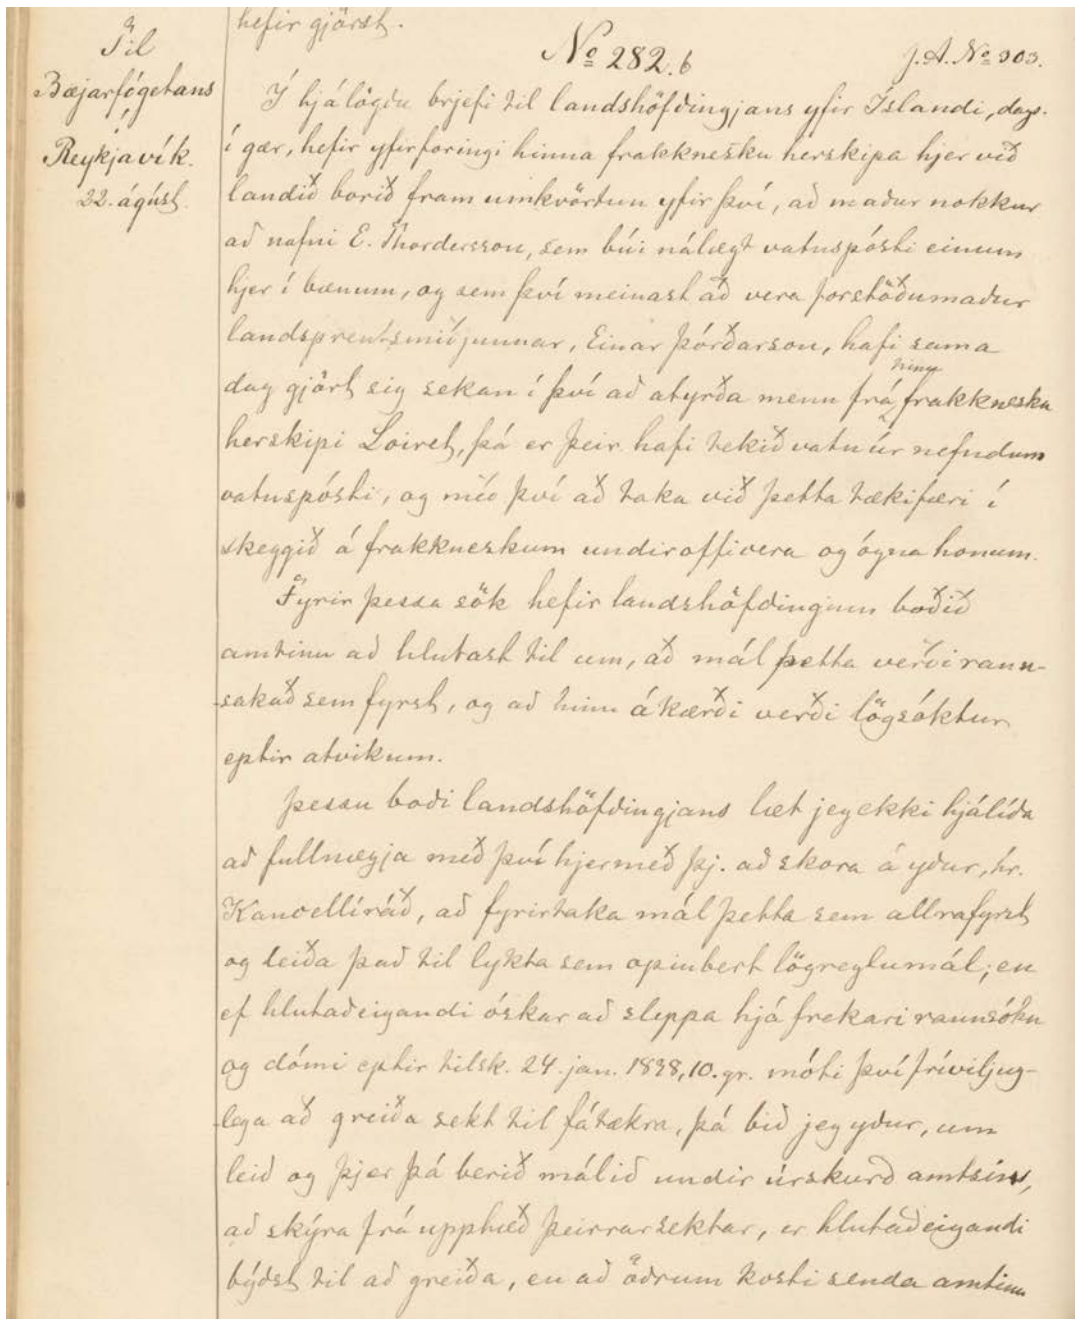 hefir gjörst.
Til
Bæjarfógetans
í
Reykjavík.
22. ágúst.
No 282.b
J.A. No 303.
Í hjálögðu brjefi til landshöfðingjans yfir Íslandi, dags.
í gær, hefir yfirforingi hinna frakknesku herskipa hjer við
landið borið fram umkvörtun yfir því, að maður nokkur
að nafni E. Thordersson, sem búi nálægt vatnspósti einum
hjer í bænum, og sem því meinast að vera forstöðumaður
landsprentsmiðjunnar, Einar Þórðarson, hafi sama
dag gjört sig sekan í því að atyrða menn frá hinu frakkneska
herskipi Loiret, þá er þeir hafi tekið vatn úr nefndum
vatnspósti, og með því að taka við þetta tækifæri í
skeggið á frakkneskum undirofficera og ógna honum.
Fyrir þessa sök hefir landshöfðinginn boðið
amtinu að hlutast til um, að mál þetta verði rann-
sakað sem fyrst, og að hinn ákærði verði lögsóktur
eptir atvikum.
Þessu boði landshöfðingjans læt jeg ekki hjálíða
að fullnægja með því hjermeð þj. að skora á yður, hr.
Kancellíráð, að fyrirtaka mál þetta sem allrafyrst
og leiða það til lykta sem opinbert lögreglumál; en
ef hlutaðeigandi óskar að sleppa hjá frekari rannsókn
og dómi eptir tilsk. 24. jan. 1838, 10. gr. móti því fríviljug-
lega að greiða sekt til fátækra, þá bið jeg yður, um
leið og þjer þá berið málið undir úrskurð amtsins,
að skýra frá upphæð þeirrar sektar, er hlutaðeigandi
býðst til að greiða, en að öðrum kosti senda amtinu